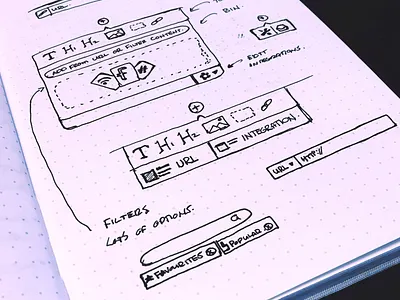 URL.
TO
BIN.
T H₁ H₂
ADD FROM URL OR FILTER CONTENT
EDIT
INTEGRATIONS.
T H₁ H₂
URL
INTEGRATION.
URL HTTP://
FILTERS
LOTS OF OPTIONS.
FAVOURITES
POPULAR